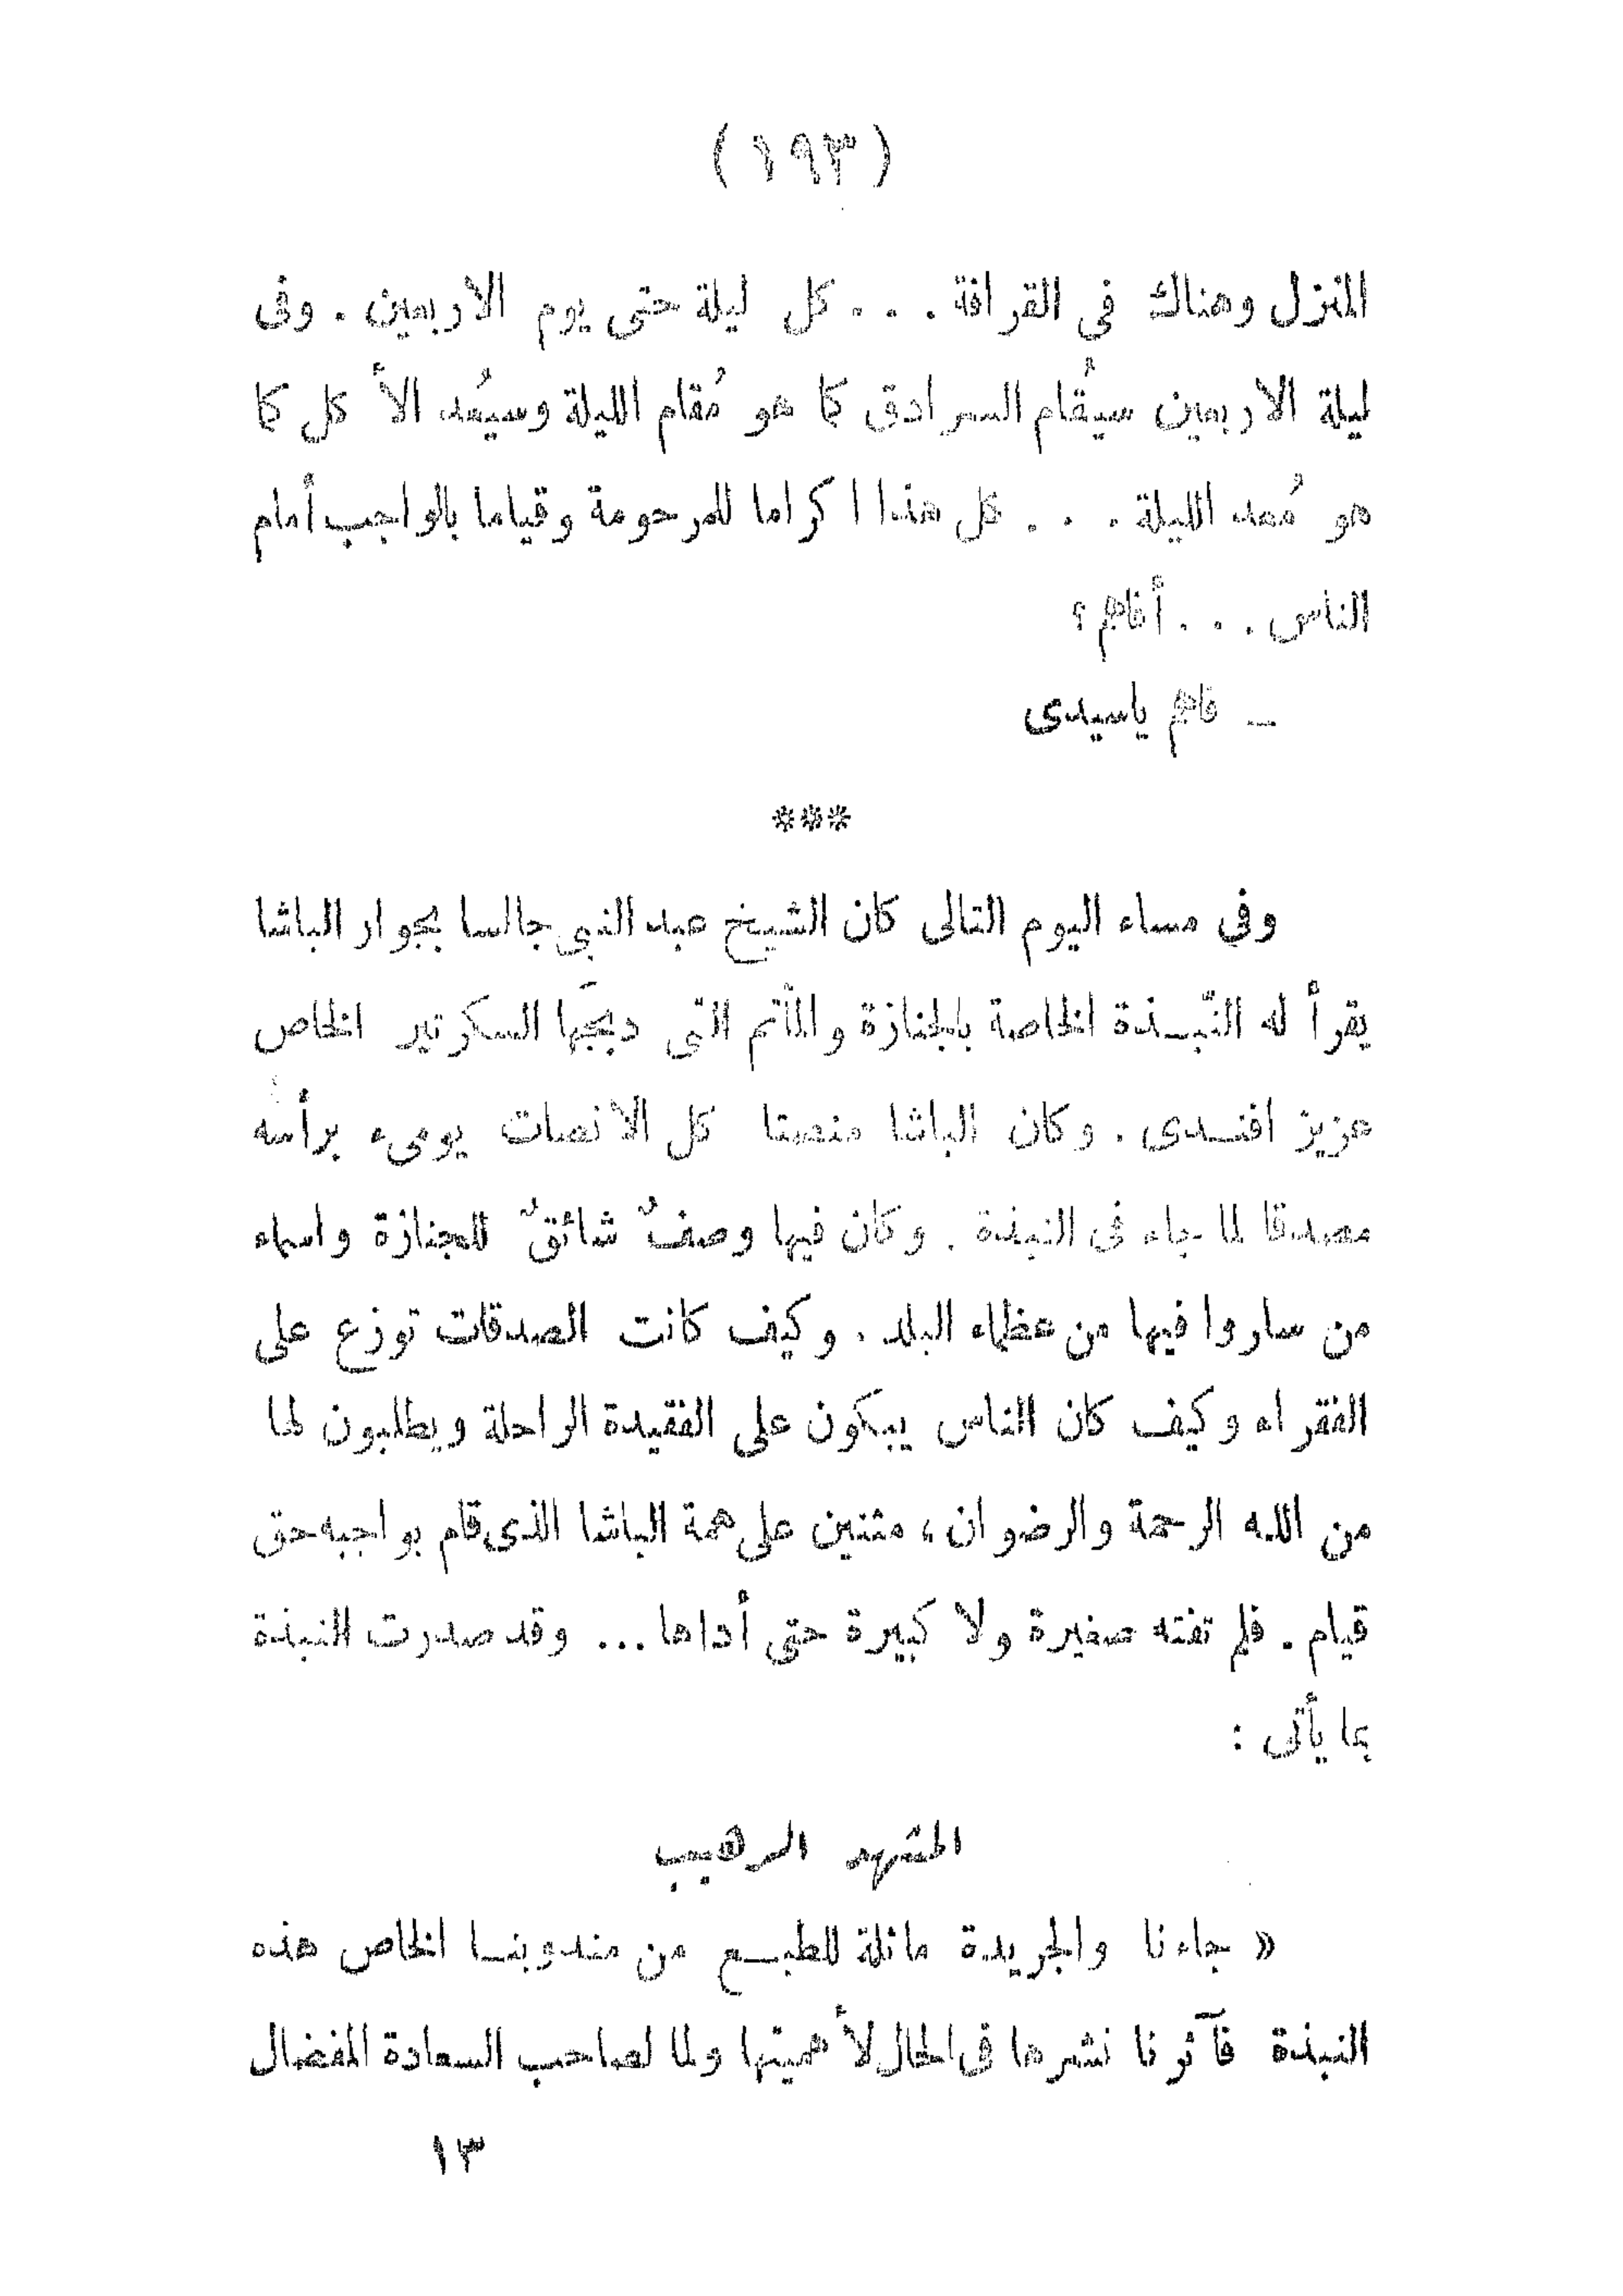 (١٩٣)
المنزل وهناك في القرافة . . . كل ليلة حتى يوم الاربعين . وفى
ليلة الاربعين سيُقام السرادق كما هو مُقام الليلة وسيُعد الأ كل كما
هو مُعد الليلة . . . كل هذا ا كراما للمرحومة وقياما بالواجب أمام
الناس . . . أفاهم ؟
ــ فاهم ياسيدى
***
وفى مساء اليوم التالى كان الشيخ عبد النبى جالسا بجوار الباشا
يقرأ له النّبـذة الخاصة بالجنازة والمأتم التى دبجَّها السكرتير الخاص
عزيز افنـدى . وكان الباشا منصتا كل الانصات يومىء برأسه
مصدقا لما جاء فى النبذة . وكان فيها وصفٌ شائقٌ للجنازة واسماء
من ساروا فيها من عظماء البلد . وكيف كانت الصدقات توزع على
الفقراء وكيف كان الناس يبكون على الفقيدة الراحلة ويطلبون لها
من الله الرحمة والرضوان ، مثنين على همة الباشا الذى قام بواجبه حق
قيام . فلم تفته صغيرة ولا كبيرة حتى أداها ... وقد صدرت النبذة
بما يأتى :
المشهد الرهيب
« جاءنا والجريدة ماثلة للطبـع من مندوبنـا الخاص هذه
النبذة فآثرنا نشرها فى الحال لأهميتها ولما لصاحب السعادة المفضال
١٣